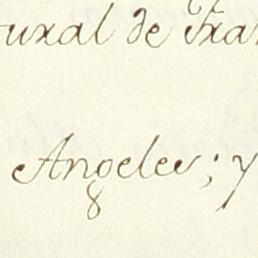 tural de Fran
Angeles; y